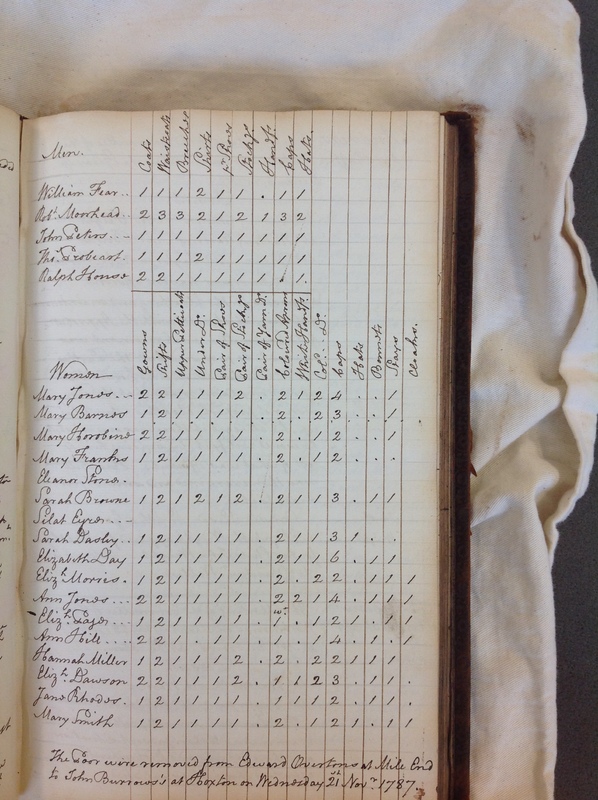 Men. Coats Waistcoats Breeches Shirts Pr. Shoes Stockgs Handfs. Caps Hats.
William Fear.. 1 1 1 2 1 1 . 1 1
Robt. Moorhead.. 2 3 3 2 1 2 1 3 2
John Peters.... 1 1 1 1 1 1 1 1 1
Thos. Probeart. 1 1 1 2 1 1 1 1 1
Ralph House 2 2 1 1 1 1 1 . 1
Women Gowns Shifts Upper Petticoats Under Do. Pair of Shoes Pair of Stockgs Pair of Do. Colourd Aprons White Handfs. Cold. .. Do. Caps Hats Bonnets Stays Cloakes.
Mary Jones... 2 2 1 1 1 2 . 2 1 2 4 . . 1
Mary Barnes 1 2 1 1 1 1 . 2 . 2 3 . . 1
Mary Horobine 2 2 1 1 1 1 . 2 . 1 2 . . 1
Mary Franks 1 2 1 1 1 1 . 2 . 1 2 . . .
Eleanor Stone.
Sarah Browne 1 2 1 2 1 2 . 2 1 1 3 . 1 1
Silat Eyres....
Sarah Dasley.. 1 2 1 1 1 1 . 2 1 1 3 1 . .
Elizabeth Day 1 2 1 1 1 1 . 2 1 1 6 . 1 1
Elizh. Morris. 1 2 1 1 1 1 . 2 . 2 2 . 1 1 1
Ann Jones... 2 2 1 1 1 1 . 2 2 . 4 . 1 1 1
Elizh. 1 2 1 1 1 1 . wt. 1 . 1 2 1 . 1 1
Ann Hill.... 2 2 1 . 1 1 . 1 . 1 4 . 1 . 1
Hannah Miller 1 2 1 1 1 2 . 2 . 2 2 1 1 1
Elizh. Dawson 2 2 1 1 1 2 . 1 1 2 3 . 1 1 .
Jane Rhodes. 1 2 1 1 1 1 . 1 1 1 2 . . 1 .
Mary Smith 1 2 1 1 1 1 . 2 . 1 2 1 . 1 .
The Poor were removed from Edward Overtons at Mile End
to John Burrows's at Hoxton on Wednesday 21st Novr. 1787.